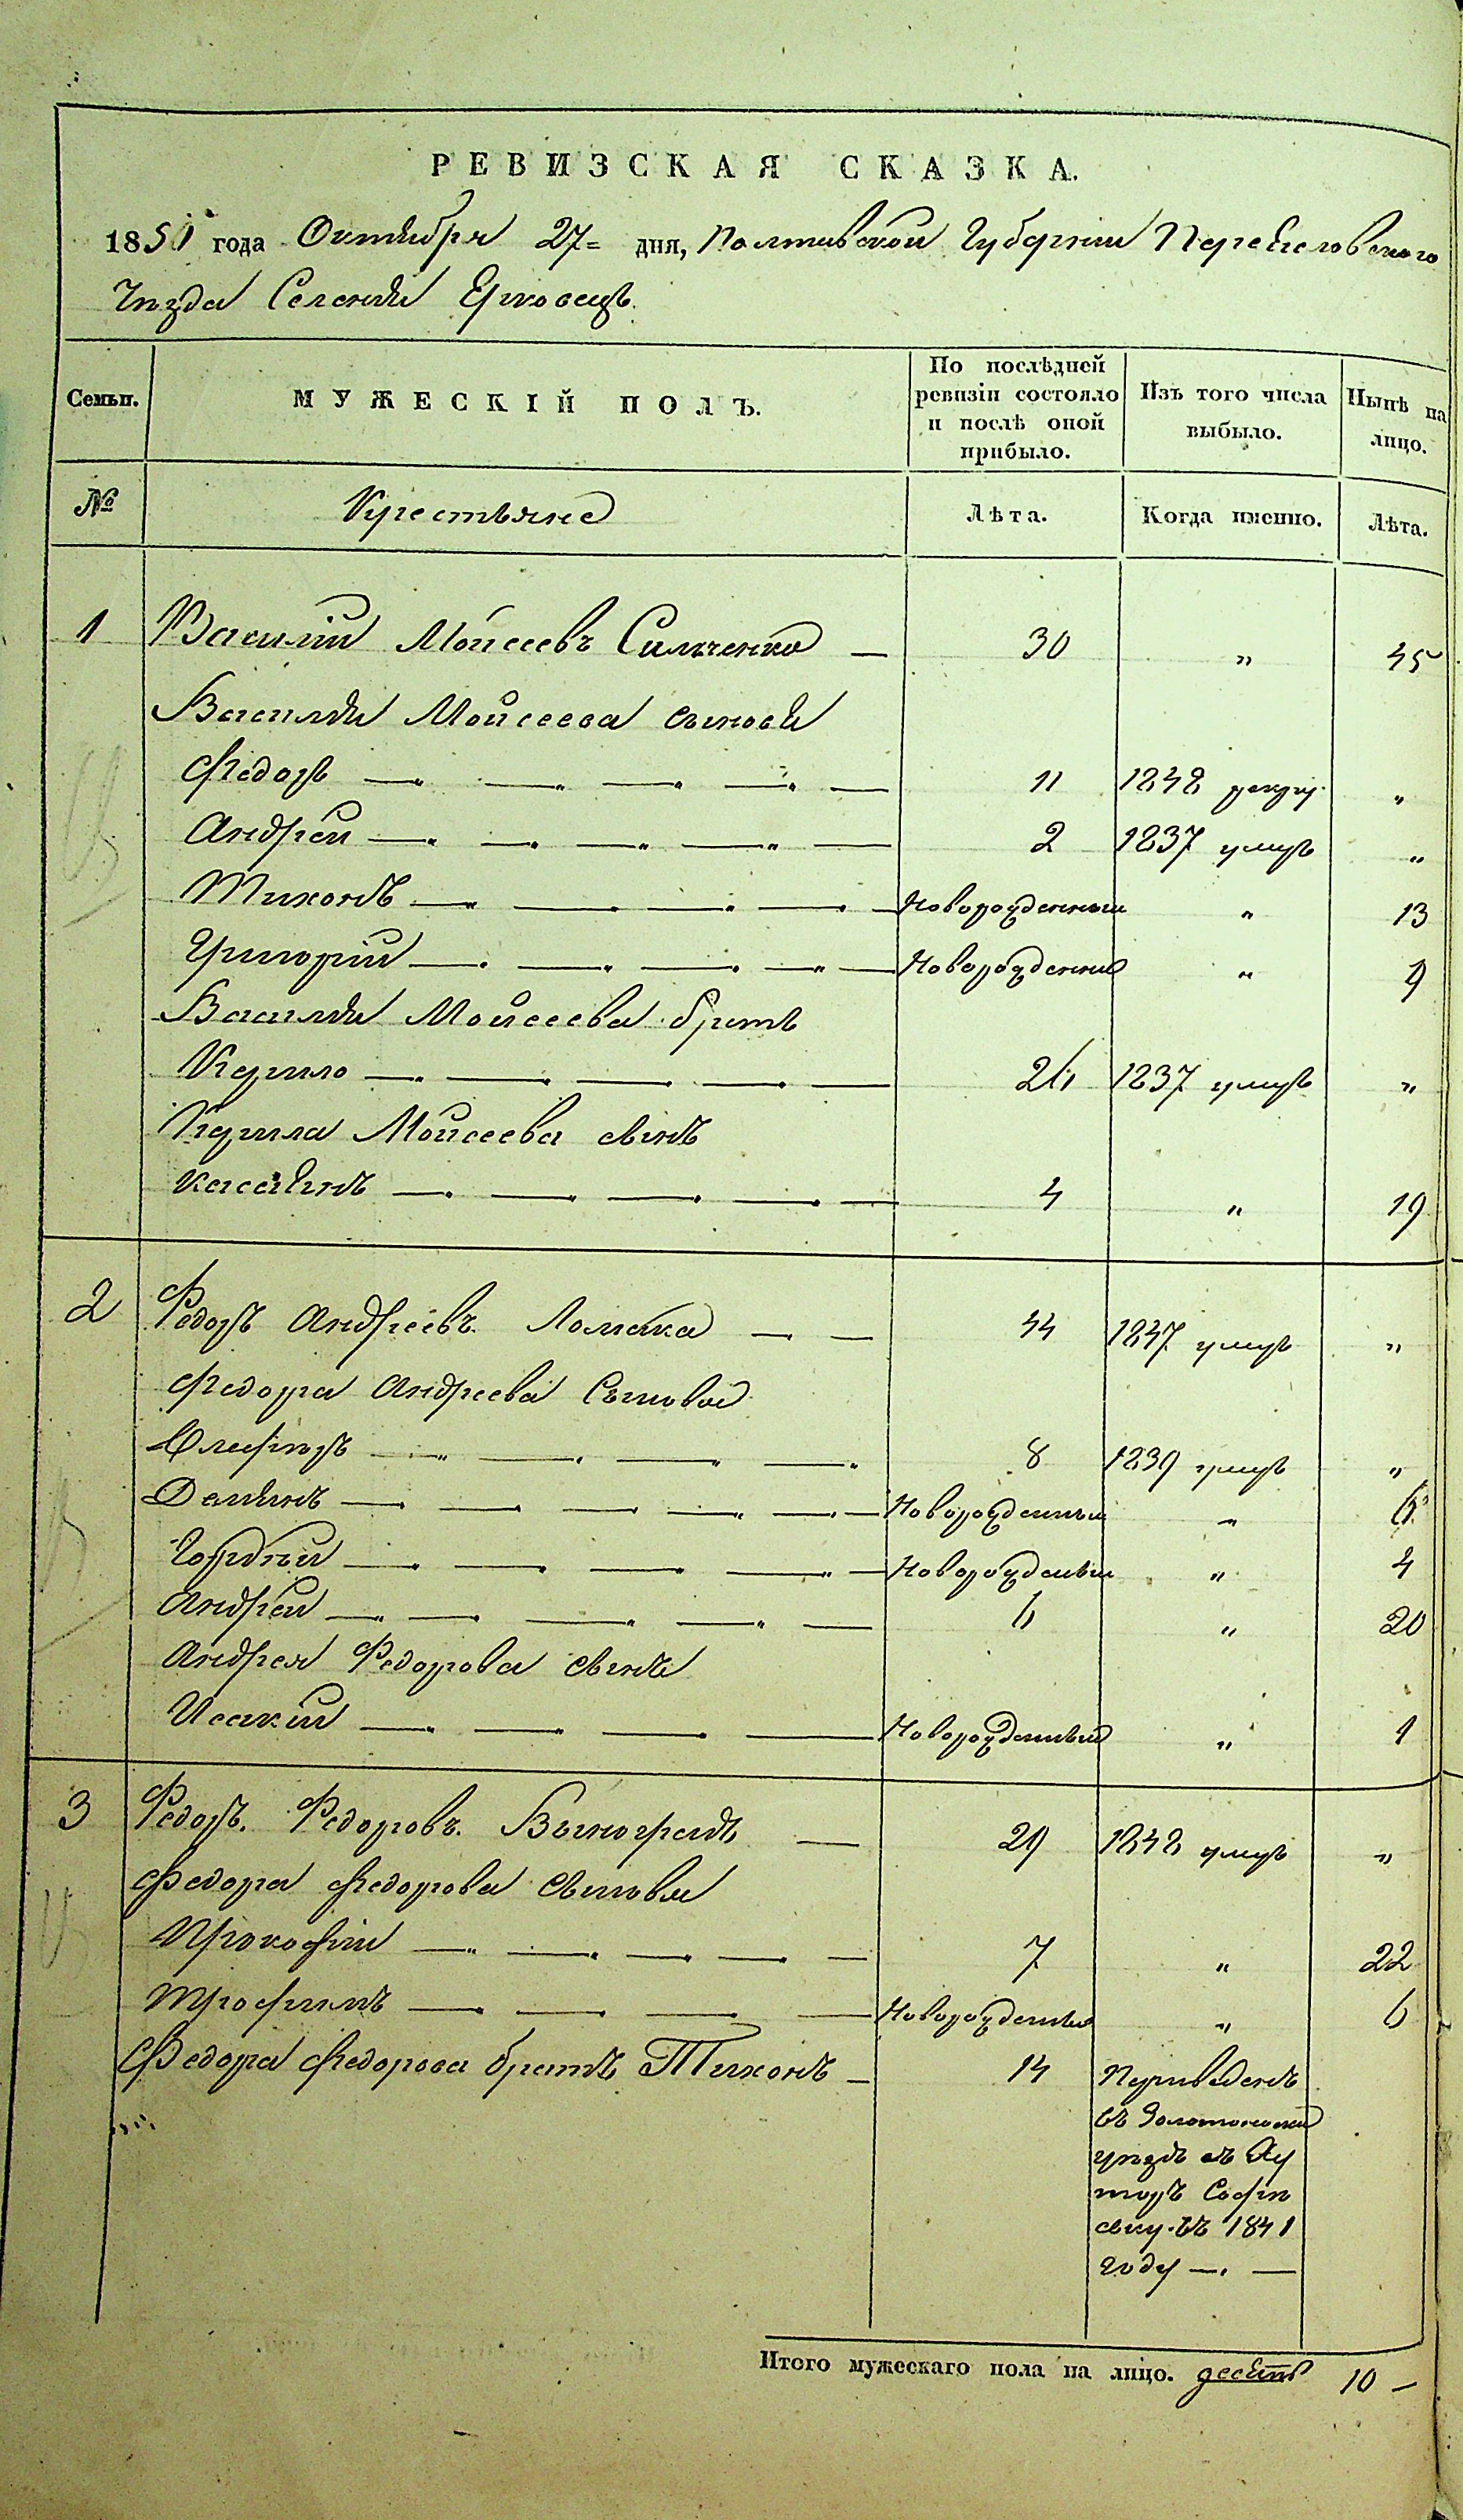 РЕВИЗСКАЯ СКАЗКА.
1850 года Октября 27= дня, Полтавской Губерніи Переяславского
Уѣзда Селенія Ерковецъ.
Семьи. МУЖЕСКІЙ ПОЛЪ. По послѣдней ревизіи состояло и послѣ оной прибыло. Изъ того числа выбыло. Нынѣ на лицо.
№ Крестьяне Лѣта. Когда именно. Лѣта.
1 Василій Мойсеевъ Сильченко — 30 „ 45
Василія Мойсеева сыновя
Федоръ 11 1848 рекру. „
Андрей 2 1837 умеръ „
Тихонъ Новорожденный „ 13
Григорій Новорожденный „ 9
Василія Мойсеева братъ
Кирило 26 1837 умеръ „
Кирила Мойсеева сынъ
Касіянъ 4 „ 19
2 Федоръ Андреевъ Ломака 44 1847 умеръ „
Федора Андреева Сыновья
8 1839 умеръ „
Даміянъ Новорожденный „ 6
Гордѣй Новорожденный „ 4
Андрей 6 „ 20
Андрея Федорова сынъ
Исакій Новорожденный „ 1
3 Федоръ Федоровъ Выноградъ — 29 1848 умеръ „
Федора Федорова сыновья
Прокофій 7 „ 22
Трофимъ Новорожденный „ 6
Федора Федорова братъ Тихонъ — 14 Переведенъ
въ Золотоноскій
уѣздъ въ Ху
торъ Софіе
вку въ 1841
году
Итого мужескаго пола на лицо. десять 10 —